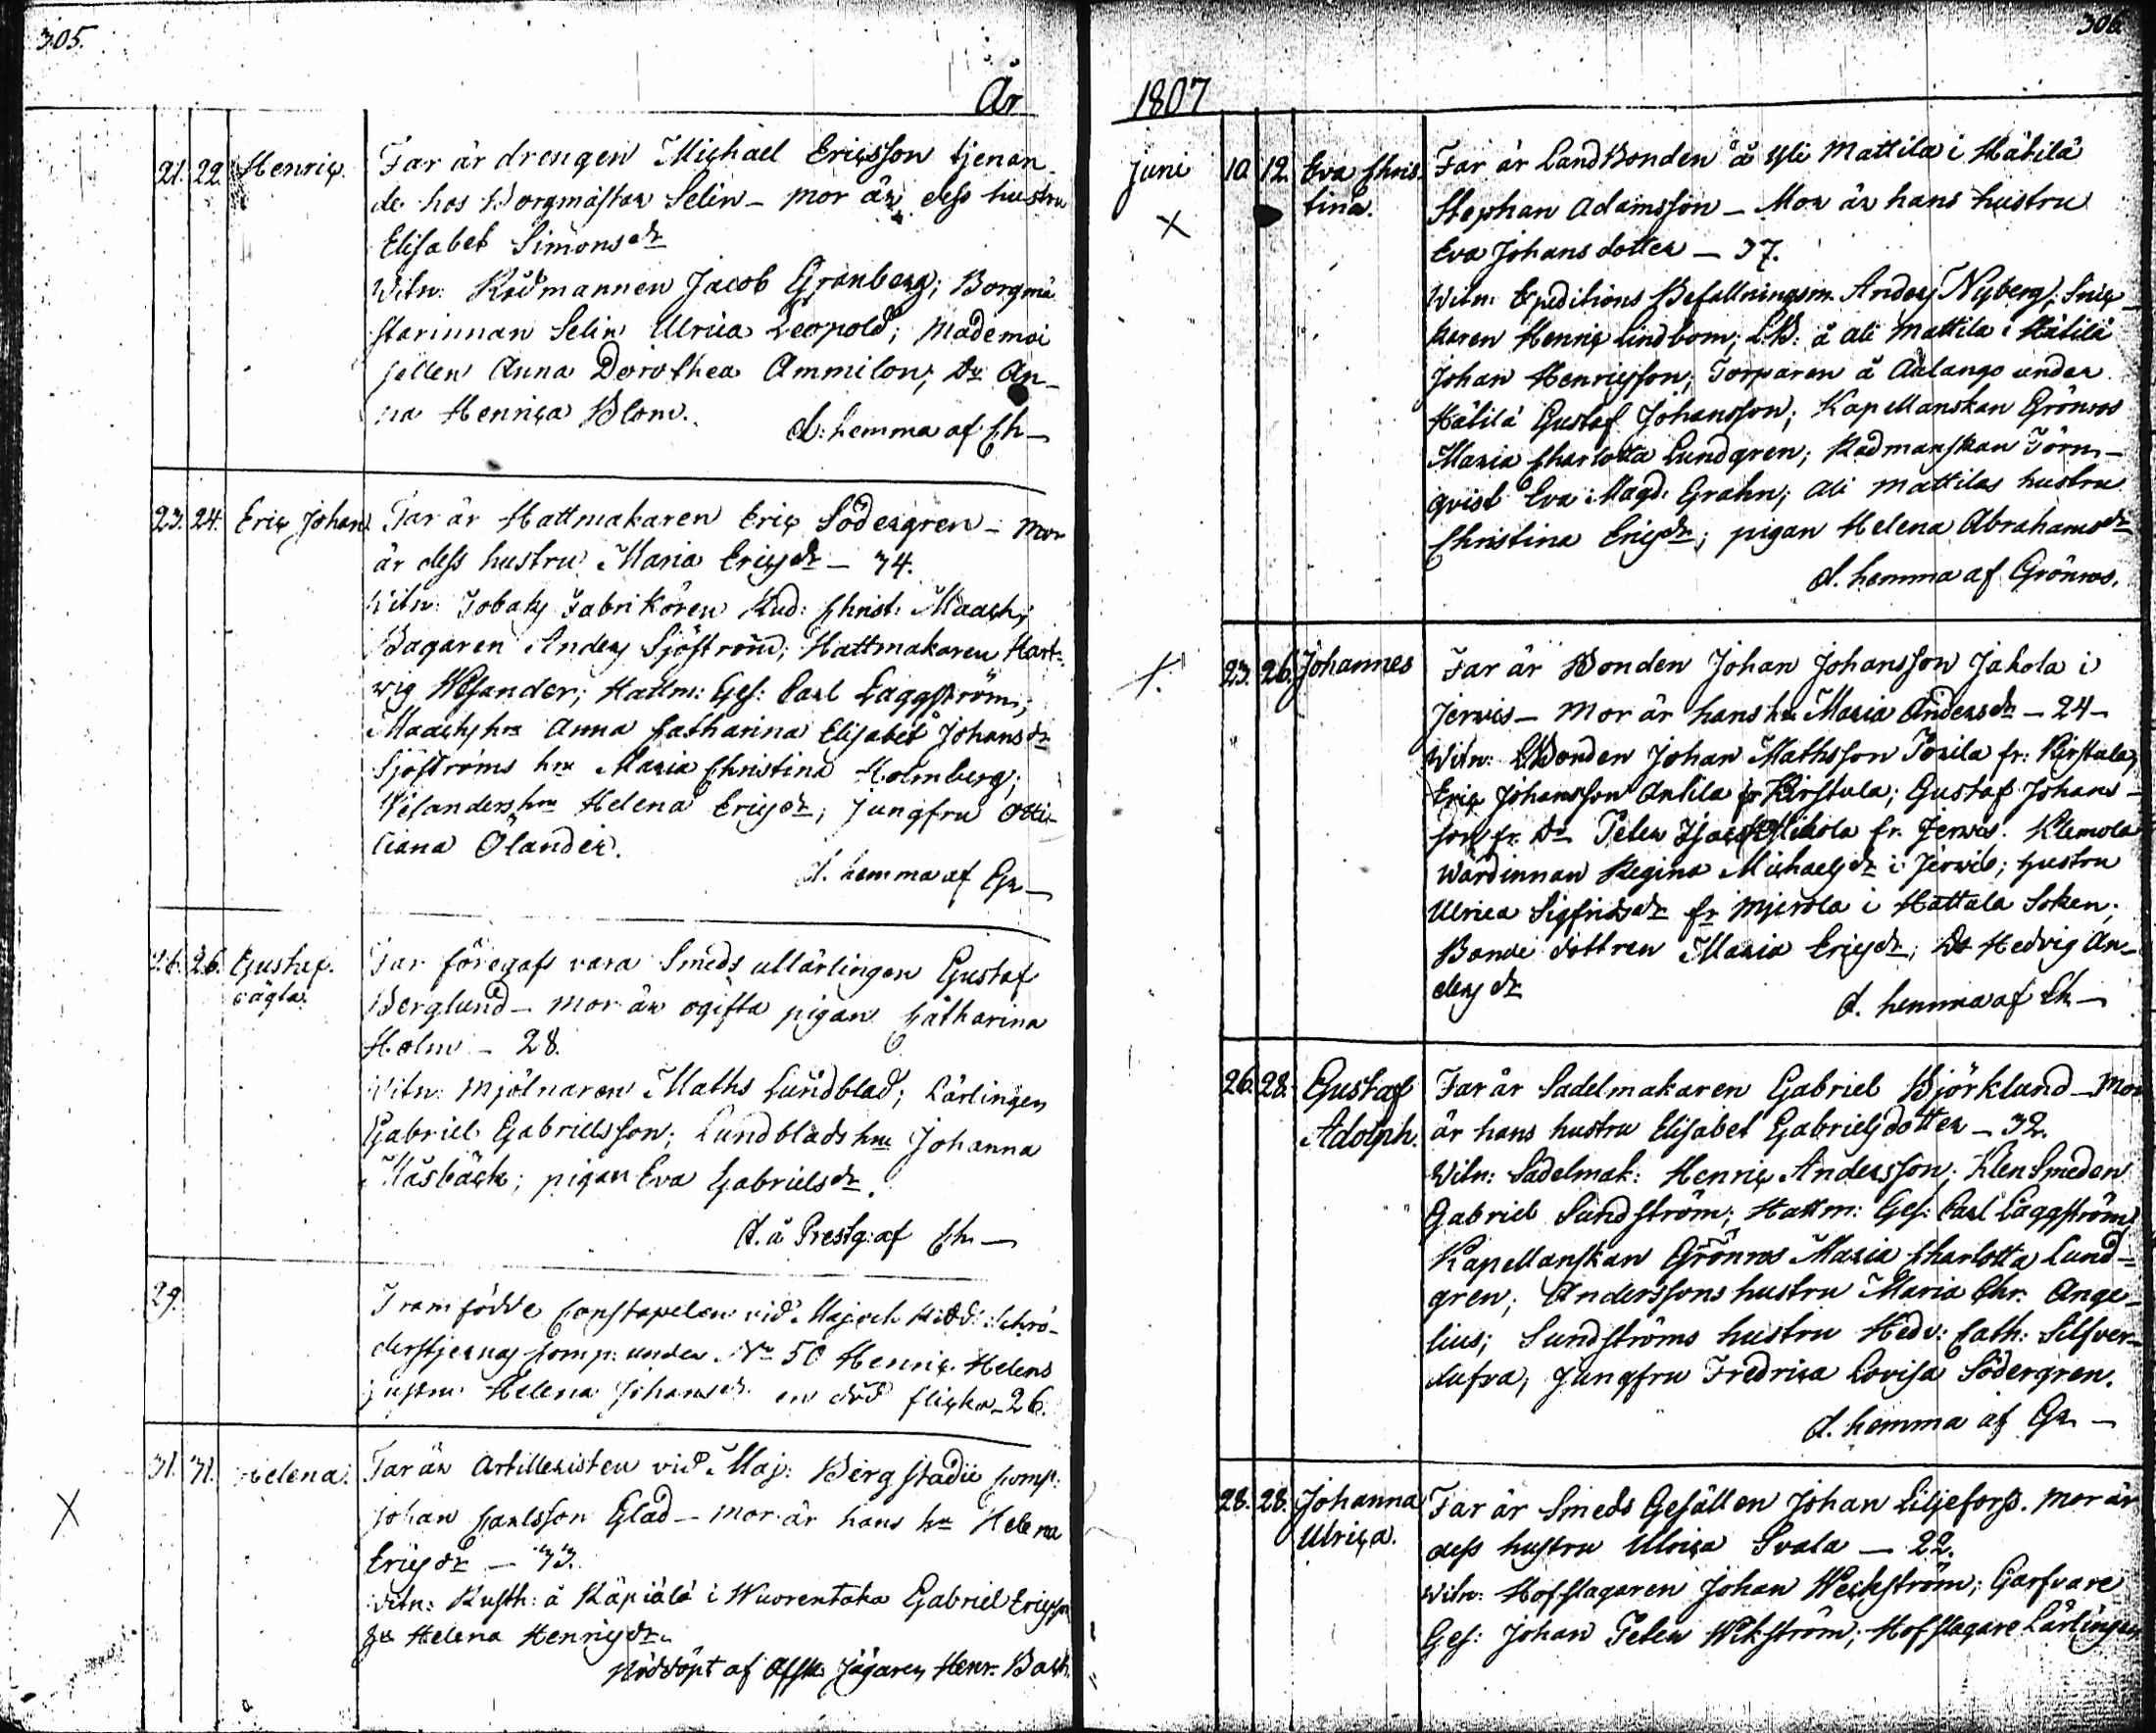 305.
År
21. 22. Henric. Far är drengen Michael Ericsson tjenan-
de hos Borgmästar Selin - mor är dess hustru
Elisabet Simonsdr
Witn: Rådmannen Jacob Granberg; Borgmä
starinnan Selin Ulrica Leopold; Mademoi
sellen Anna Dorothea Ammilon; Do An-
na Henrica Blom.
d: hemma af Ch-
23. 24. Eric Johan Far är Hattmakaren Eric Södergren - Mor
är dess hustru Maria Ericsdr - 34.
Witn: Tobaks Fabrikören Lud: Christ:
Bagaren Anders Sjöström; Hattmakaren Hart-
wig Wesander; Hattm: Ges: Carl Läggström;
hru Anna Catharina Elisabet Johansdr
Sjöströms hru Maria Christina Holmberg;
hru Helena Ericsdr; Jungfru Otti-
liana Ölander.
d. hemma af Gr-
26. 26. Gustaf. Far föregafs vara Smeds Lärlingen Gustaf
oägta. Berglund - mor är ogifta pigan Catharina
Holm - 28.
Witn: Mjölnaren Maths Lundblad; Lärlingen
Gabriel Gabrielsson; Lundblads hru Johanna
Måsbäck; pigan Eva Gabrielsdr.
d. å Prestg: af Ch-
29. Framfödde Constapelen vid Maj: och Ridd: Schrö-
derstjernas Comp: under No 50 Henric Helens
hustru Helena Johansdr en död flicka - 26.
31. 31. Helena. Far är Artilleristen vid Maj: Bergstadii Comp:
X Johan Carlsson Glad - mor är hans hru Helena
Ericsdr - 33.
Witn: Rusth: å Käpiälä i Wuorentaka Gabriel Ericsson
Helena Henricsdr.
Nöddöpt af Jägaren Henr. Back.
306.
1807
Juni 10. 12. Eva Chris- Far är LandBonden å Yli Mattila i Hätilä
X tina. Stephan Adamsson - Mor är hans hustru
Eva Johansdotter - 37.
Witn: Expeditions Befallningsm. Anders Nyberg; Snic-
karen Henric Lindbom; LB: å Ali Mattila i Hätilä
Johan Henricsson; Torparen å Aulango under
Hätilä Gustaf Johansson; Kapellanskan Grönros
Maria Charlotta Lundgren; Rådmanskan Törn-
qvist Eva Magd: Grahn; Ali Mattilas hustru
Christina Ericsdr; pigan Helena Abrahamsdr
d. hemma af Grönros.
X. 23. 26. Johannes Far är Bonden Johan Johansson Jakola i
Jerwis - Mor är hans hru Maria Andersdr - 24 -
Witn: LBonden Johan Mathsson fr: Kirstula;
Eric Johansson Antila fr Kirstula; Gustaf Johans-
son fr. Do Peter Mikola fr. Jerwis. Klemola
Wärdinnan Regina Michaelsdr i Jerwis; hustru
Ulrica Sigfridsdr fr Mjerola i Hattala Soken;
Bonde dottren Maria Ericsdr; Do Hedvig An-
dersdr
d. hemma af Ch-
26. 28. Gustaf Far är Sadelmakaren Gabriel Björklund - Mor
Adolph. är hans hustru Elisabet Gabrielsdotter - 32.
Witn: Sadelmak: Henric Andersson; KlenSmeden
Gabriel Sundström; Hattm: Ges: Carl Läggström
Kapellanskan Grönros Maria Charlotta Lund-
gren; Anderssons hustru Maria Chr. Ange-
lius; Sundströms hustru Hedv: Cath: Silfver-
dufva; Jungfru Fredrica Lovisa Södergren.
d. hemma af Gr -
28. 28. Johanna Far är Smeds Gesällen Johan Liljeforss. Mor är
Ulrica. dess hustru Ulrica Svala - 22.
Witn: Hofslagaren Johan Weckström; Garfvare
Ges: Johan Peter Wikström; Hofslagare Lärlingen